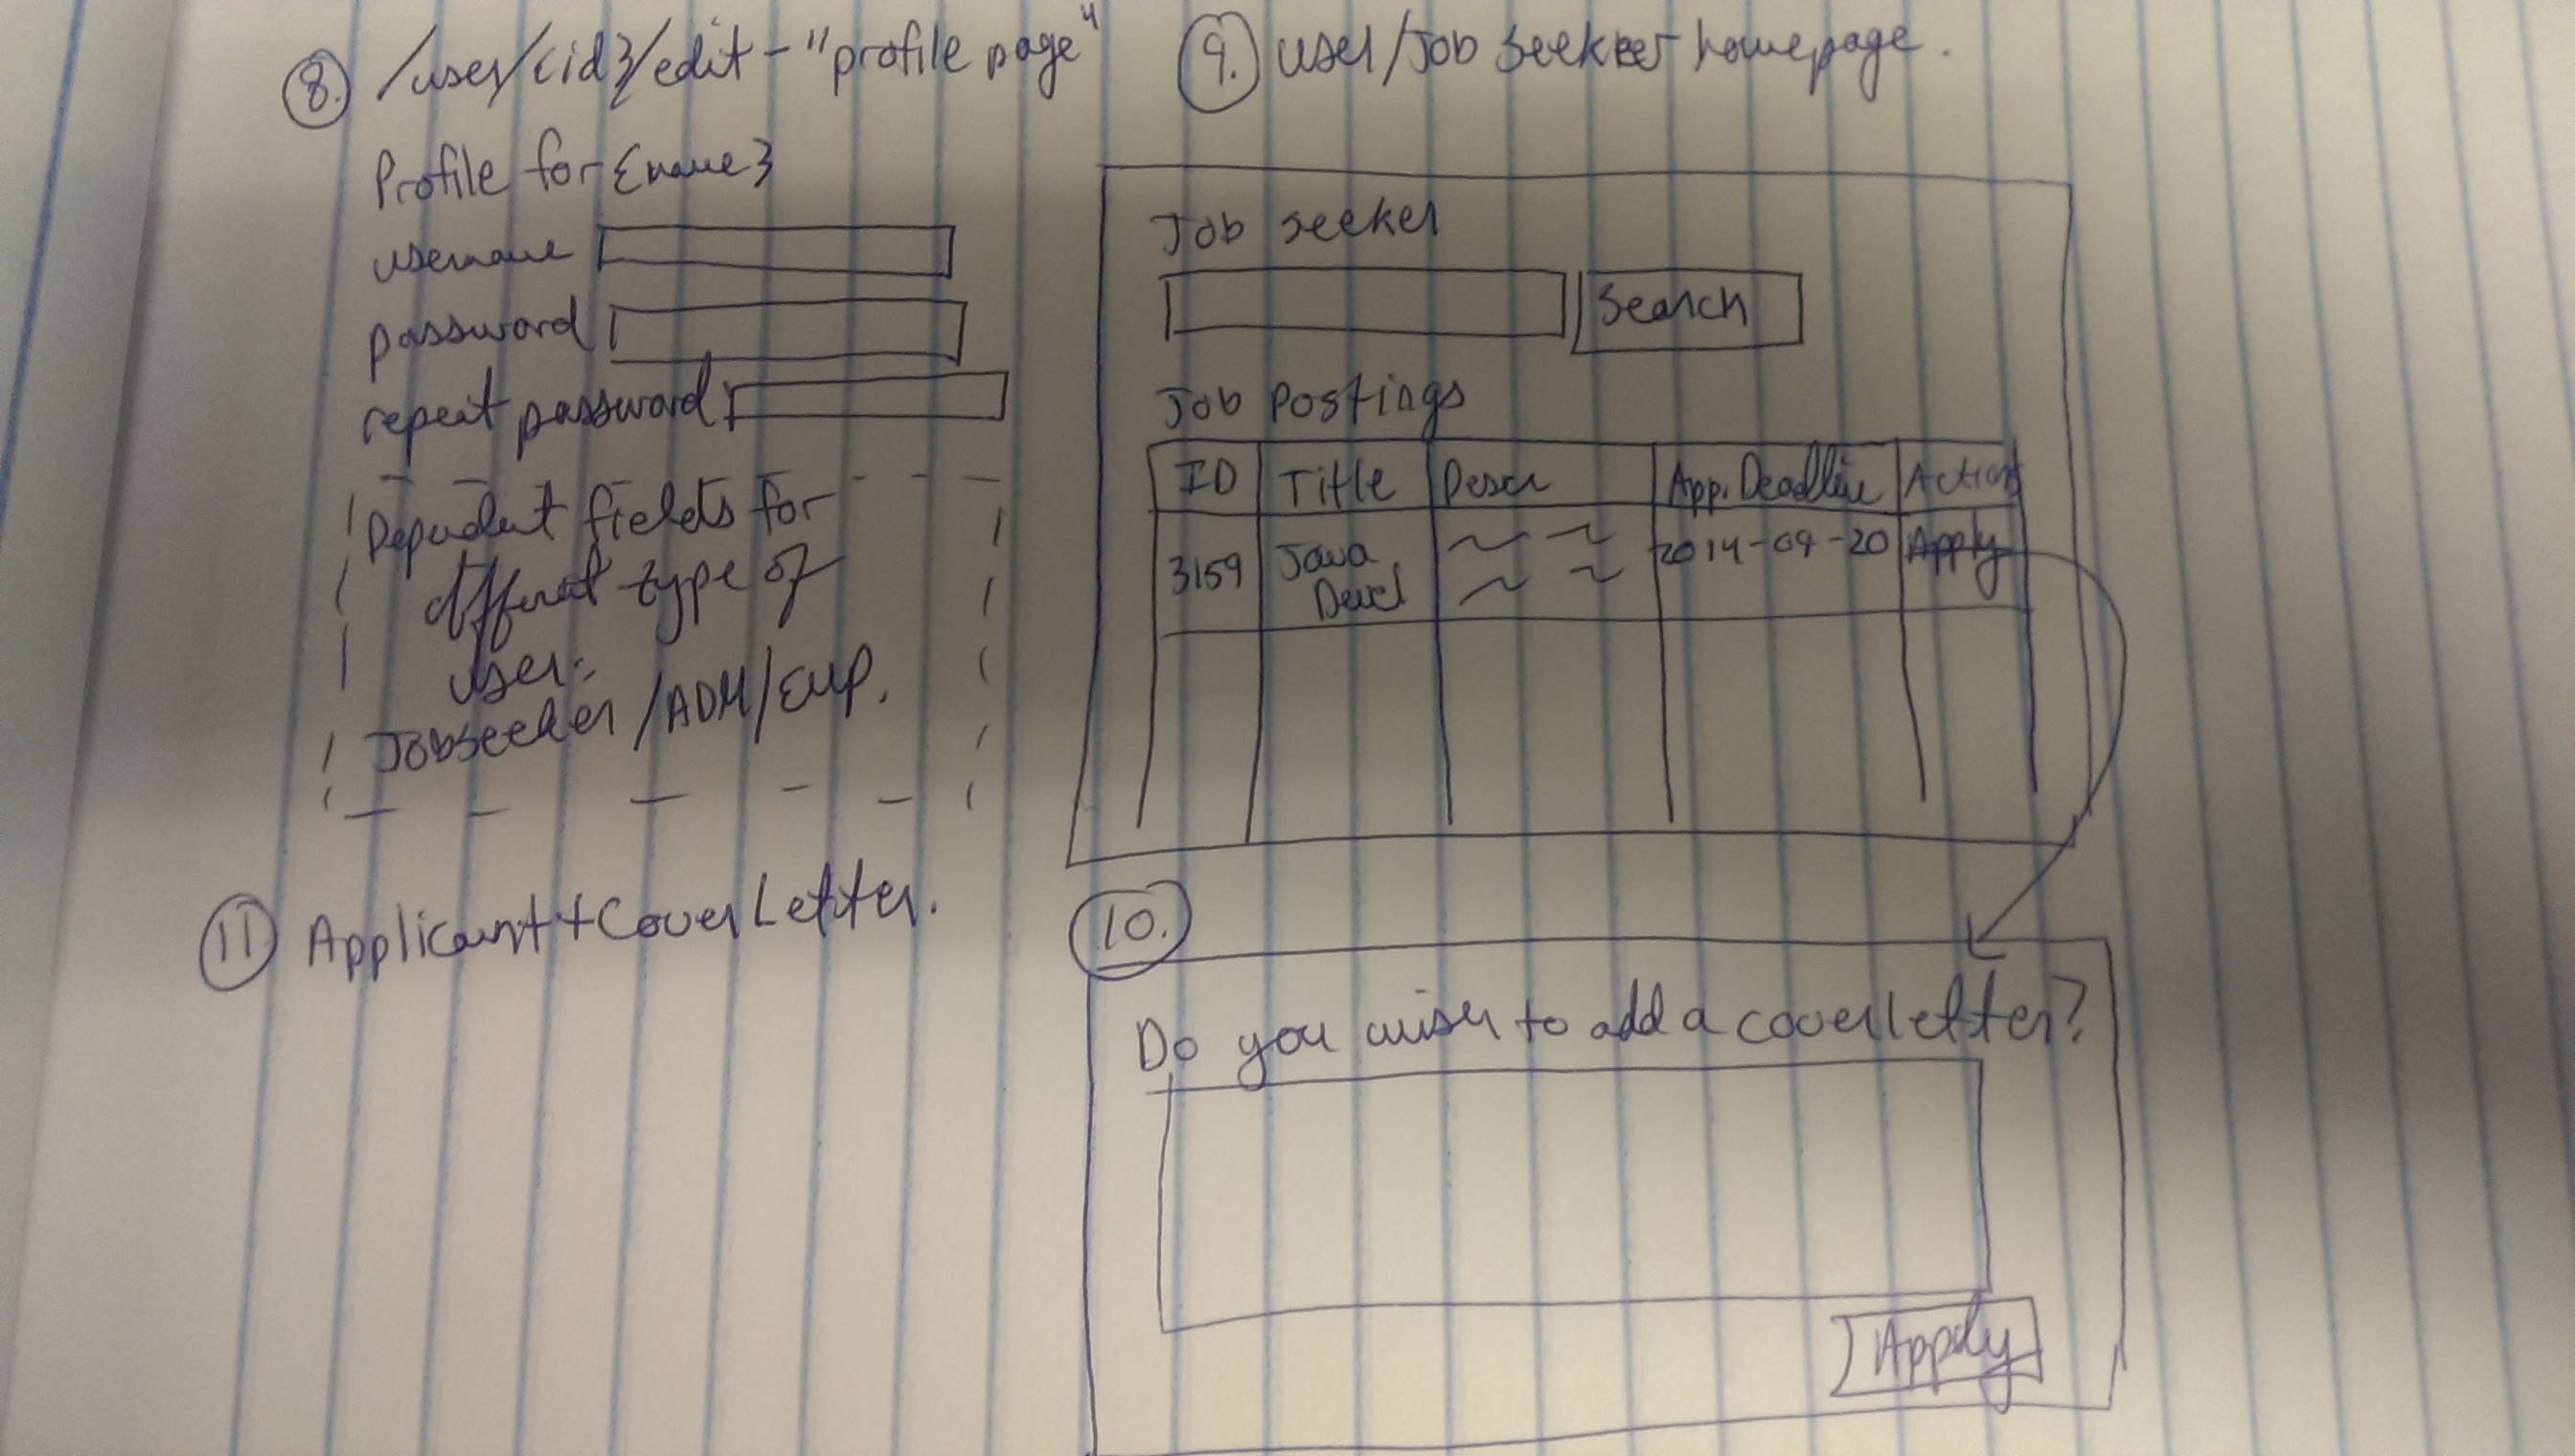 8. /user/{id}/edit - "profile page"
Profile for {name}
username
password
repeat password
Dependent fields for
different type of
user:
Jobseeker/ADM/Emp.
9. user/Job Seeker homepage.
Job seeker
Search
Job Postings
ID Title Descr App. Deadline Action
3159 Java 2014-09-20 Apply
Devel
10.
Do you wish to add a cover letter?
Apply
11 Applicant + Cover Letter.